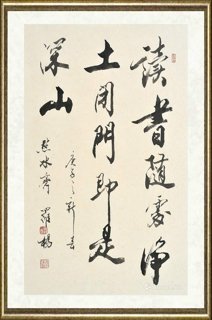 讀書隨處淨
土閉門即是
深山
庚子之新書
照水齋 羅楊